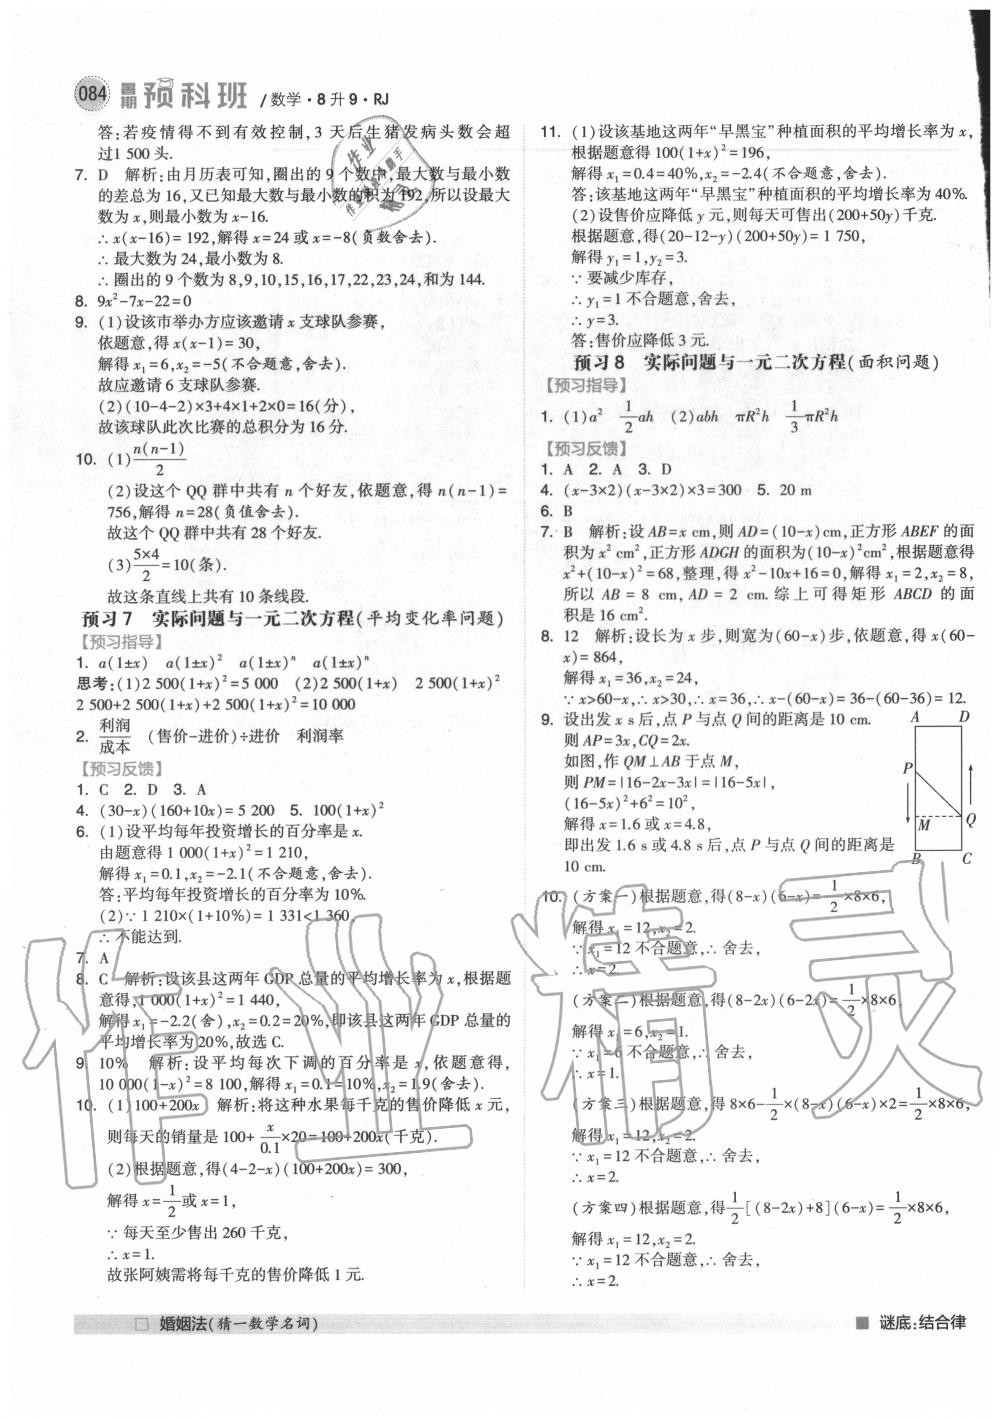 084 暑期 预科班 /数学·8升9·RJ
答:若疫情得不到有效控制,3 天后生猪发病头数会超
过1 500 头.
7. D 解析:由月历表可知,圈出的 9 个数中,最大数与最小数
的差总为 16,又已知最大数与最小数的积为 192,所以设最大
数为 x,则最小数为 x-16.
∴ x(x-16)= 192,解得 x=24 或 x=-8(负数舍去).
∴ 最大数为 24,最小数为 8.
∴ 圈出的 9 个数为 8,9,10,15,16,17,22,23,24,和为 144.
8. 9x²-7x-22=0
9. (1)设该市举办方应该邀请 x 支球队参赛,
依题意,得 x(x-1)= 30,
解得 x₁=6,x₂=-5(不合题意,舍去).
故应邀请 6 支球队参赛.
(2)(10-4-2)×3+4×1+2×0=16(分),
故该球队此次比赛的总积分为 16 分.
10. (1)n(n-1)/2
(2)设这个 QQ 群中共有 n 个好友,依题意,得 n(n-1)=
756,解得 n=28(负值舍去).
故这个 QQ 群中共有 28 个好友.
(3)5×4/2=10(条).
故这条直线上共有 10 条线段.
预习 7 实际问题与一元二次方程(平均变化率问题)
【预习指导】
1. a(1±x) a(1±x)² a(1±x)ⁿ a(1±x)ⁿ
思考:(1)2 500(1+x)²=5 000 (2)2 500(1+x) 2 500(1+x)²
2 500+2 500(1+x)+2 500(1+x)²=10 000
2. 利润/成本 (售价-进价)÷进价 利润率
【预习反馈】
1. C 2. D 3. A
4. (30-x)(160+10x)= 5 200 5. 100(1+x)²
6. (1)设平均每年投资增长的百分率是 x.
由题意得 1 000(1+x)²=1 210,
解得 x₁=0.1,x₂=-2.1(不合题意,舍去).
答:平均每年投资增长的百分率为 10%.
(2)∵ 1 210×(1+10%)= 1 331<1 360,
∴ 不能达到.
7. A
8. C 解析:设该县这两年 GDP 总量的平均增长率为 x,根据题
意得,1 000(1+x)²=1 440,
解得 x₁=-2.2(舍),x₂=0.2=20%,即该县这两年 GDP 总量的
平均增长率为 20%,故选 C.
9. 10% 解析:设平均每次下调的百分率是 x,依题意得,
10 000(1-x)²=8 100,解得 x₁=0.1=10%,x₂=1.9(舍去).
10. (1)100+200x 解析:将这种水果每千克的售价降低 x 元,
则每天的销量是 100+x/0.1×20=100+200x(千克).
(2)根据题意,得(4-2-x)(100+200x)= 300,
解得 x=1/2或 x=1,
∵ 每天至少售出 260 千克,
∴ x=1.
故张阿姨需将每千克的售价降低 1 元.
11. (1)设该基地这两年“早黑宝”种植面积的平均增长率为 x,
根据题意得 100(1+x)²=196,
解得 x₁=0.4=40%,x₂=-2.4(不合题意,舍去).
答:该基地这两年“早黑宝”种植面积的平均增长率为 40%.
(2)设售价应降低 y 元,则每天可售出(200+50y)千克.
根据题意,得(20-12-y)(200+50y)= 1 750,
解得 y₁=1,y₂=3.
∵ 要减少库存,
∴ y₁=1 不合题意,舍去,
∴ y=3.
答:售价应降低 3 元.
预习 8 实际问题与一元二次方程(面积问题)
【预习指导】
1. (1)a² 1/2ah (2)abh πR²h 1/3πR²h
【预习反馈】
1. A 2. A 3. D
4. (x-3×2)(x-3×2)×3=300 5. 20 m
6. B
7. B 解析:设 AB=x cm,则 AD=(10-x)cm,正方形 ABEF 的面
积为 x² cm²,正方形 ADGH 的面积为(10-x)²cm²,根据题意得
x²+(10-x)²=68,整理,得 x²-10x+16=0,解得 x₁=2,x₂=8,
所以 AB = 8 cm, AD = 2 cm. 综上可得矩形 ABCD 的面
积是 16 cm².
8. 12 解析:设长为 x 步,则宽为(60-x)步,依题意,得 x(60-
x)= 864,
解得 x₁=36,x₂=24,
∵ x>60-x,∴ x>30,∴ x=36,∴ x-(60-x)= 36-(60-36)= 12.
9. 设出发 x s 后,点 P 与点 Q 间的距离是 10 cm.
则 AP=3x,CQ=2x.
如图,作 QM⊥AB 于点 M,
则 PM=|16-2x-3x|=|16-5x|,
(16-5x)²+6²=10²,
解得 x=1.6 或 x=4.8,
即出发 1.6 s 或 4.8 s 后,点 P 与点 Q 间的距离是
10 cm.
A D
P
M Q
B C
10. (方案一)根据题意,得(8-x)(6-x)= 1/2×8×6,
解得 x₁=12,x₂=2.
∵ x₁=12 不合题意,∴ 舍去,
∴ x=2.
(方案二)根据题意,得(8-2x)(6-2x)= 1/2×8×6.
解得 x₁=6,x₂=1.
∵ x₁=6 不合题意,∴ 舍去,
∴ x=1.
(方案三)根据题意,得 8×6-1/2×(8-x)(6-x)×2=1/2×8×6,
解得 x₁=12,x₂=2.
∵ x₁=12 不合题意,∴ 舍去,
∴ x=2.
(方案四)根据题意,得1/2[(8-2x)+8](6-x)= 1/2×8×6,
解得 x₁=12,x₂=2.
∵ x₁=12 不合题意,∴ 舍去,
∴ x=2.
□ 婚姻法(猜一数学名词)
■ 谜底:结合律
作业精灵